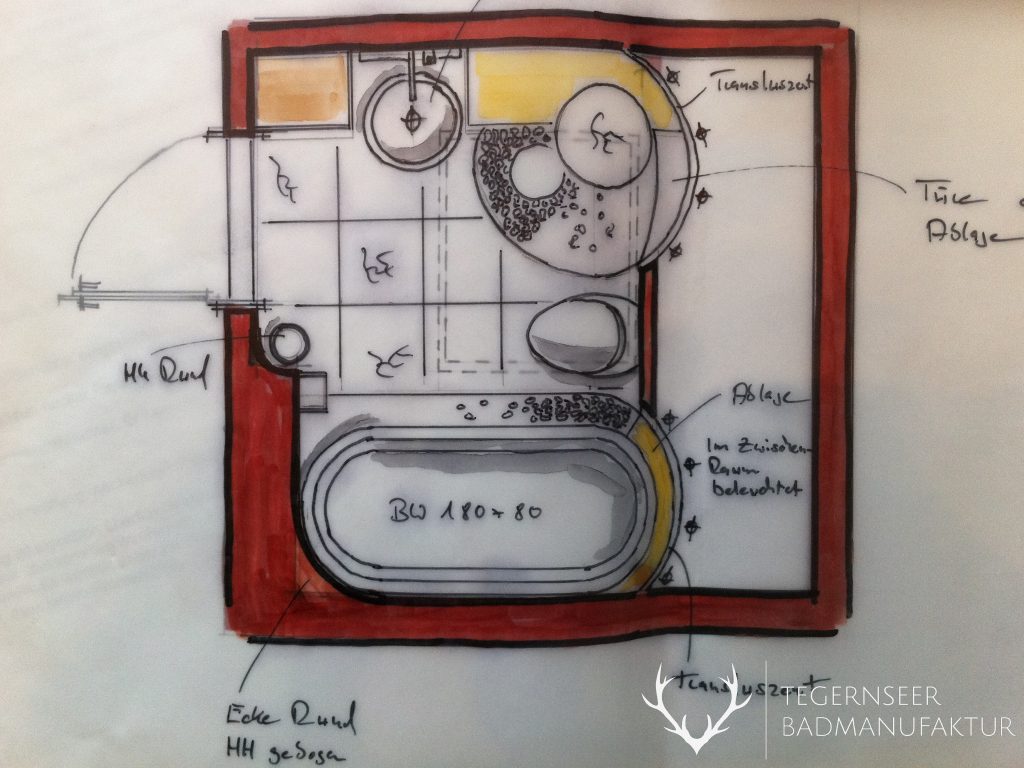 Transluszent
Türe
Ablage
HH Rund
Ablage
Im Zwischen
Raum
beleuchtet
BW 180 x 80
Transluszent
Ecke Rund
HH gebogen
TEGERNSEER
BADMANUFAKTUR